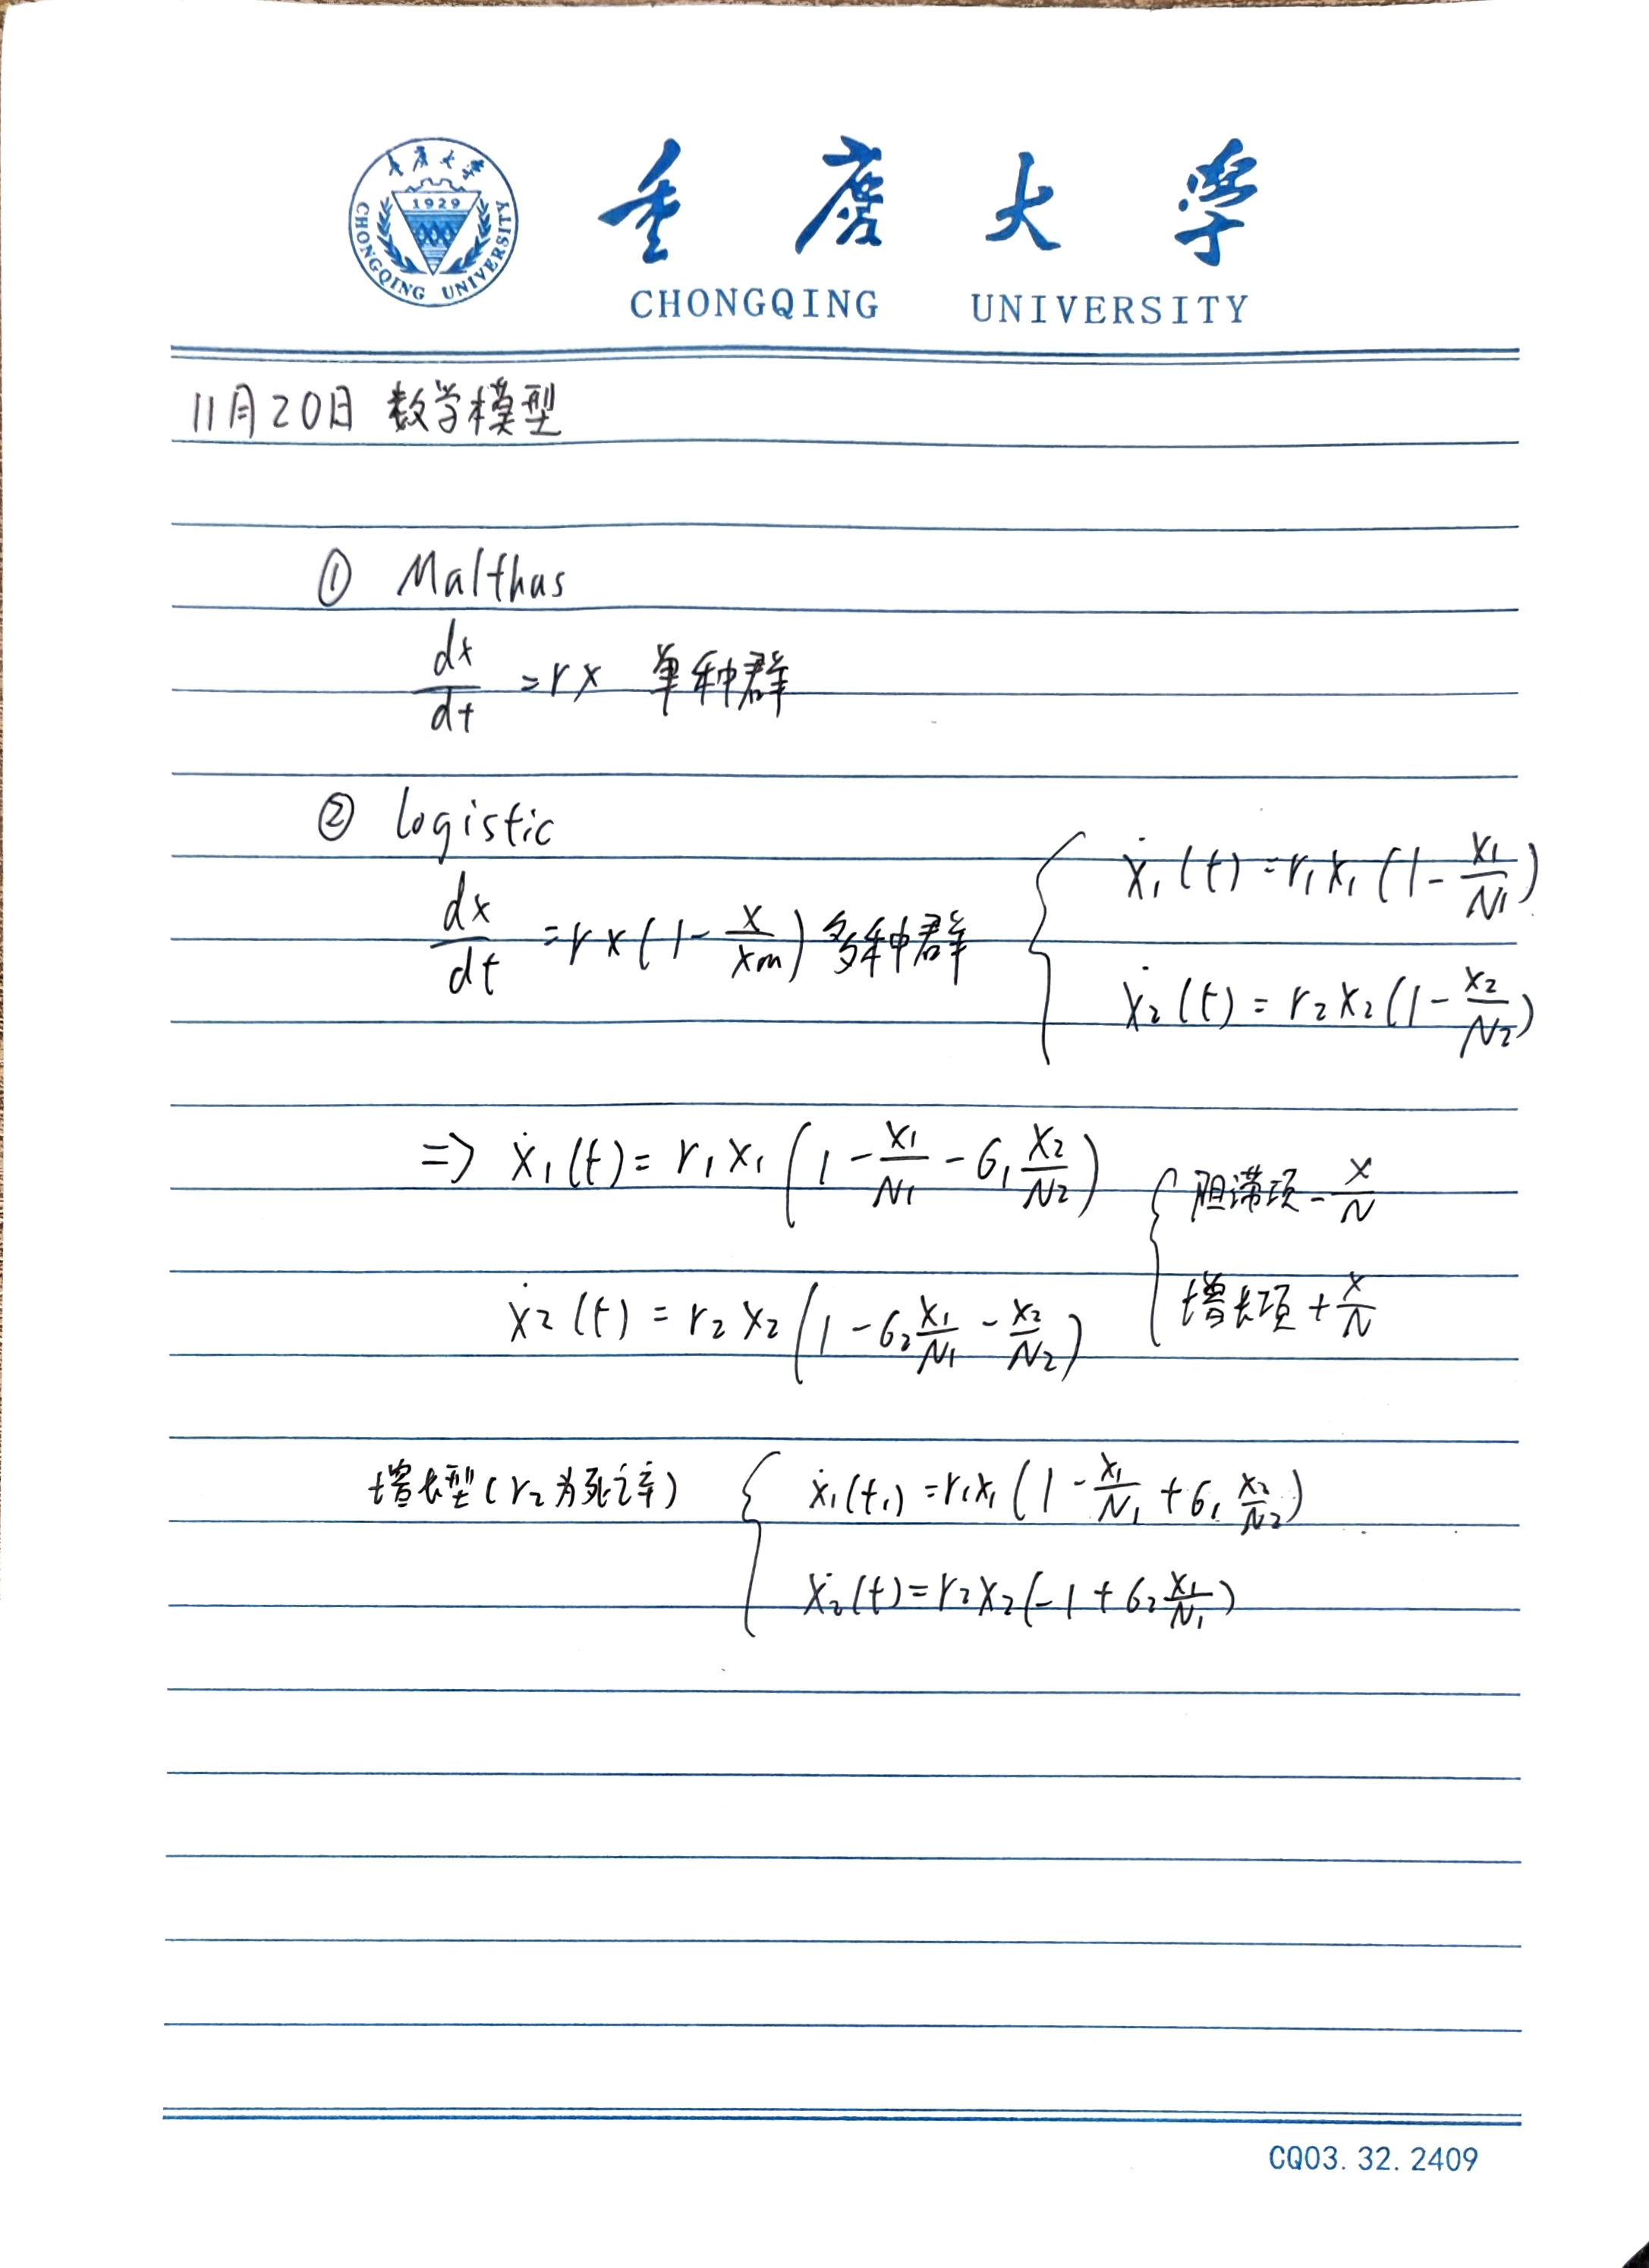 重庆大学
CHONGQING UNIVERSITY
重庆大学
1929
CHONGQING UNIVERSITY
11月20日 数学模型
① Malthus
dx/dt = rx 单种群
② logistic
dx/dt = rx(1 - x/xm) 多种群
{ ẋ₁(t) = r₁x₁(1 - x₁/N₁)
ẋ₂(t) = r₂x₂(1 - x₂/N₂)
=> ẋ₁(t) = r₁x₁(1 - x₁/N₁ - 6₁ x₂/N₂)
ẋ₂(t) = r₂x₂(1 - 6₂ x₁/N₁ - x₂/N₂)
{ 阻滞项 - x/N
增长项 + x/N
增长型(r₂为死亡率)
{ ẋ₁(t₁) = r₁x₁(1 - x₁/N₁ + 6₁ x₂/N₂)
ẋ₂(t) = r₂x₂(-1 + 6₂ x₁/N₁)
CQ03.32.2409